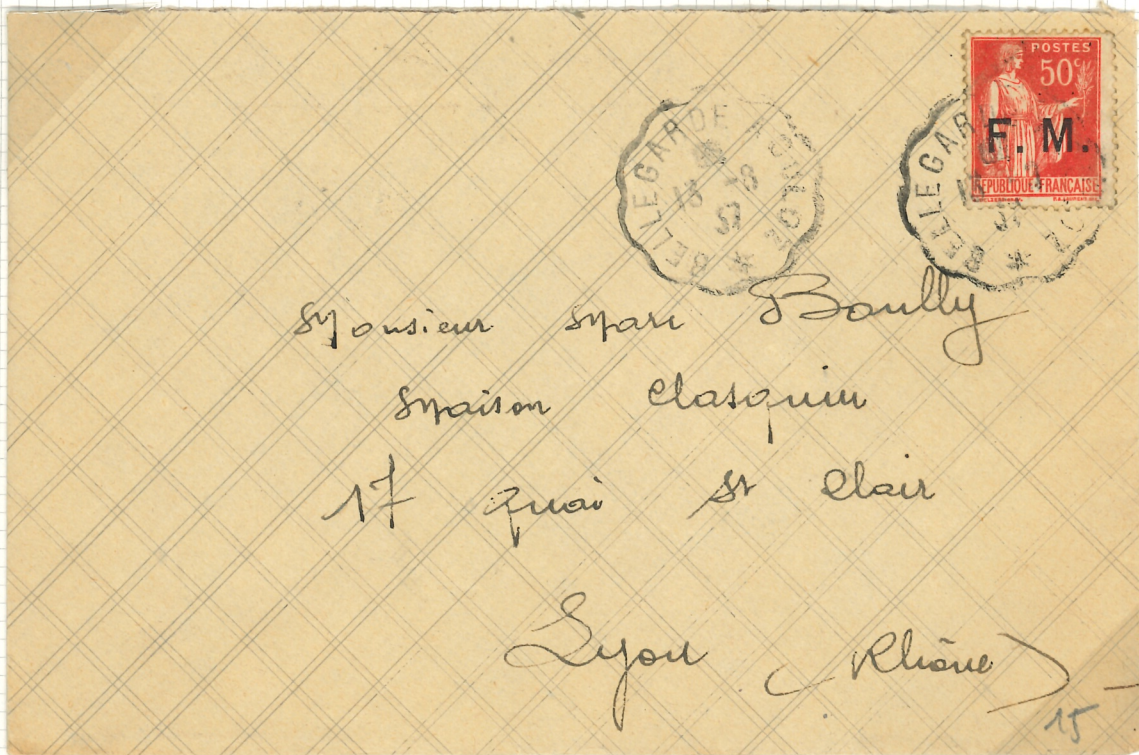 POSTES
50c
F. M.
REPUBLIQUE FRANÇAISE
BELLEGARDE
13 -8
37
BELLEGAR
Monsieur Marc Boully
Maison Clasquin
17 quai St Clair
Lyon (Rhône)
15